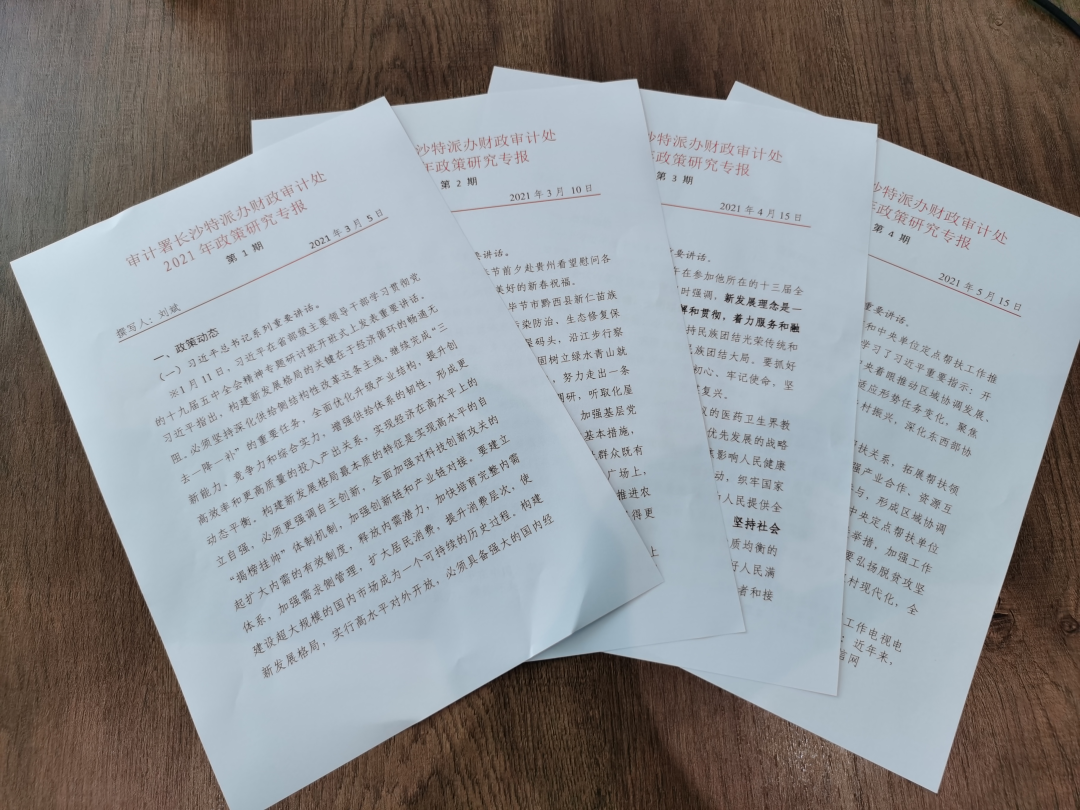 审计署长沙特派办财政审计处
2021 年政策研究专报
第 1 期
2021 年 3 月 5 日
撰写人：刘斌
一、政策动态
（一）习近平总书记系列重要讲话。
※1 月 11 日，习近平在省部级主要领导干部学习贯彻党
的十九届五中全会精神专题研讨班开班式上发表重要讲话。
习近平指出，构建新发展格局的关键在于经济循环的畅通无
阻，必须坚持深化供给侧结构性改革这条主线，继续完成“三
去一降一补”的重要任务，全面优化升级产业结构，提升创
新能力、竞争力和综合实力，增强供给体系的韧性，形成更
高效率和更高质量的投入产出关系，实现经济在高水平上的
动态平衡。构建新发展格局最本质的特征是实现高水平的自
立自强，必须更强调自主创新，全面加强对科技创新攻关的
“揭榜挂帅”体制机制，加强创新链和产业链对接。要建立
起扩大内需的有效制度，释放内需潜力，加快培育完整内需
体系，加强需求侧管理，扩大居民消费，提升消费层次，使
建设超大规模的国内市场成为一个可持续的历史过程。构建
新发展格局，实行高水平对外开放，必须具备强大的国内经
沙特派办财政审计处
年政策研究专报
第 2 期
2021 年 3 月 10 日
要讲话。
节前夕赴贵州看望慰问各
美好的新春祝福。
毕节市黔西县新仁苗族
染防治、生态修复保
码头，沿江步行察
固树立绿水青山就
，努力走出一条
调研，听取化屋
加强基层党
基本措施，
群众既有
广场上，
推进农
得更
上
沙特派办财政审计处
年政策研究专报
第 3 期
2021 年 4 月 15 日
要讲话。
在参加他所在的十三届全
时强调，新发展理念是一
解和贯彻，着力服务和融
持民族团结光荣传统和
族团结大局。要抓好
初心、牢记使命，坚
复兴。
的医药卫生界教
优先发展的战略
影响人民健康
动，织牢国家
人民提供全
坚持社会
质均衡的
好人民满
者和接
沙特派办财政审计处
年政策研究专报
第 4 期
2021 年 5 月 15 日
重要讲话。
和中央单位定点帮扶工作推
学习了习近平重要指示；开
着眼推动区域协调发展、
适应形势任务变化，聚焦
村振兴，深化东西部协
扶关系，拓展帮扶领
强产业合作、资源互
与，形成区域协调
中央定点帮扶单位
举措，加强工作
要弘扬脱贫攻坚
村现代化，全
工作电视电
近年来，
官网